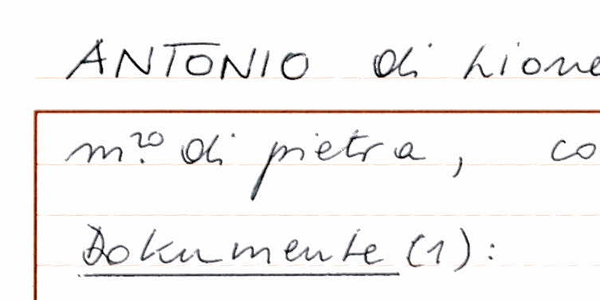 ANTONIO di Lione
m.ᶻᵒ di pietra, co
Dokumente (1):